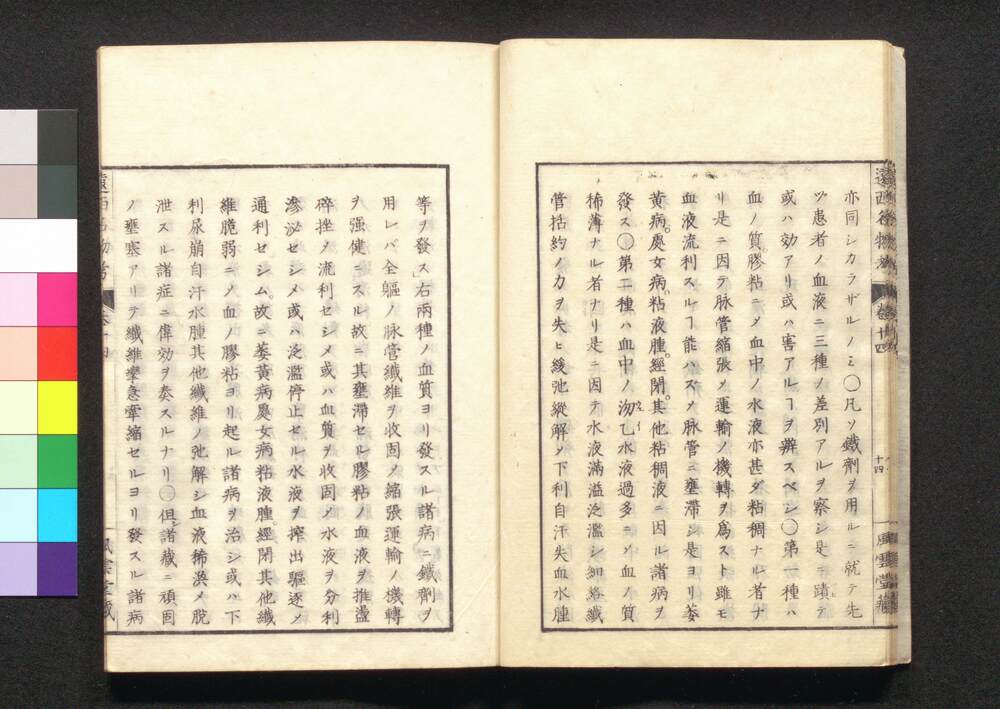 亦同シカラザルノミ〇凡ソ鐵劑ヲ用ルニ就テ先
ヅ患者ノ血液ニ三種ノ差別アルヲ察シ是ニ蹟テ
或ハ効アリ或ハ害アルヿヲ辨スベシ〇第一種ハ
血ノ質膠粘ニノ血中ノ水液亦甚ダ粘稠ナル者ナ
リ是ニ因テ脉管縮張ノ運輸ノ機轉ヲ爲スト雖モ
血液流利スルヿ能ハズノ脉管ニ壅滯シ是ヨリ萎
黄病處女病粘液腫經閉其他粘稠液ニ因ル諸病ヲ
發ス〇第二種ハ血中ノ沕乙水液過多ニノ血ノ質
稀薄ナル者ナリ是ニ因テ水液滿溢泛濫シ細絡纖
管括約ノ力ヲ失ヒ緩弛縱解ノ下利自汗失血水腫
等ヲ發ス右兩種ノ血質ヨリ發スル諸病ニ鐵劑ヲ
用レバ全軀ノ脉管纖維ヲ收固ノ縮張運輸ノ機轉
ヲ强健ニスル故ニ其壅滯セル膠粘ノ血液ヲ推盪
碎挫ノ流利セシメ或ハ血質ヲ收固ノ水液ヲ分利
滲泌セシメ或ハ泛濫停止セル水液ヲ搾出驅逐ノ
通利セシム故ニ萎黄病處女病粘液腫經閉其他纖
維脆弱ニノ血ノ膠粘ヨリ起ル諸病ヲ治シ或ハ下
利尿崩自汗水腫其他纖維ノ弛解シ血液稀渙ノ脱
泄スル諸症ニ偉効ヲ奏スルナリ〇但諸藏ニ頑固
ノ壅塞アリテ纖維攣急牽縮セルヨリ發スル諸病
卷十四
十四
風雲堂藏